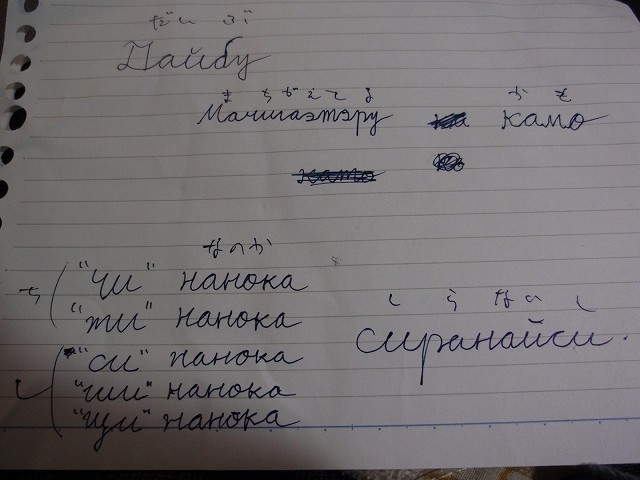 だいぶ
Дайбу
まちがえてる かも
Мачигаэтэру камо
なのか
ち "чи" нанока
"ти" нанока
しらないし
сиранайси.
し "си" нанока
"ши" нанока
"щи" нанока